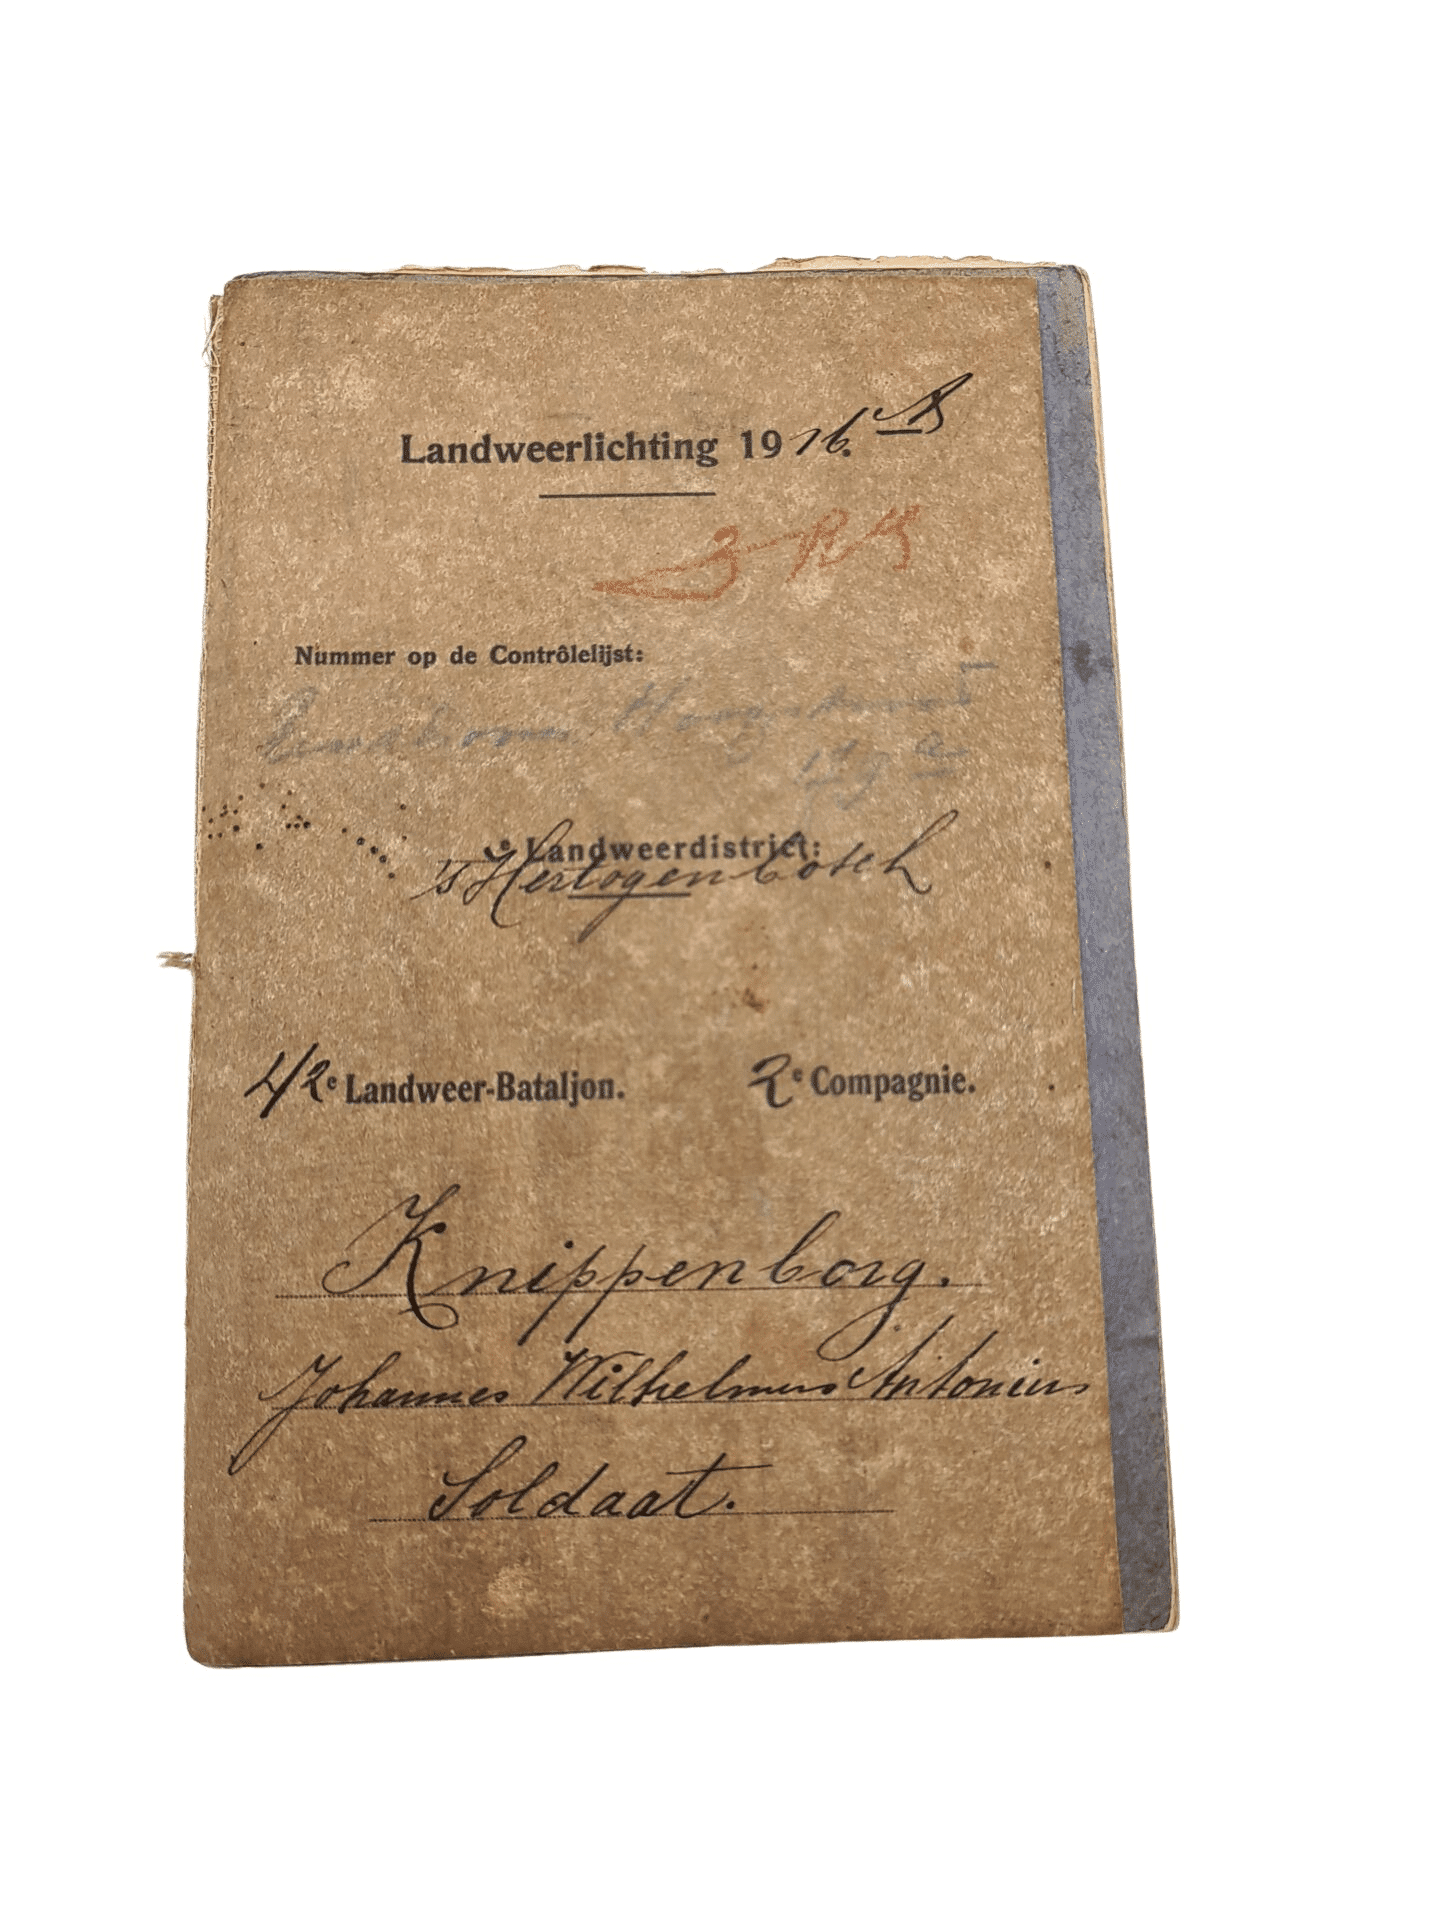 Landweerlichting 1916.
Nummer op de Contrôlelijst:
e Landweerdistrict:
's Hertogenbosch
42e Landweer-Bataljon. 2e Compagnie.
Knippenborg.
Johannes Wilhelmus Antonius
Soldaat.